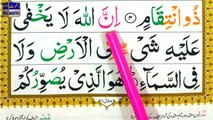 ذُو انْتِقَامٍ ۝ اِنَّ اللّٰهَ لَا يَخْفٰى
عَلَيْهِ شَىْءٌ فِى الْاَرْضِ وَلَا
فِى السَّمَآءِ ۝ هُوَ الَّذِىْ يُصَوِّرُكُمْ